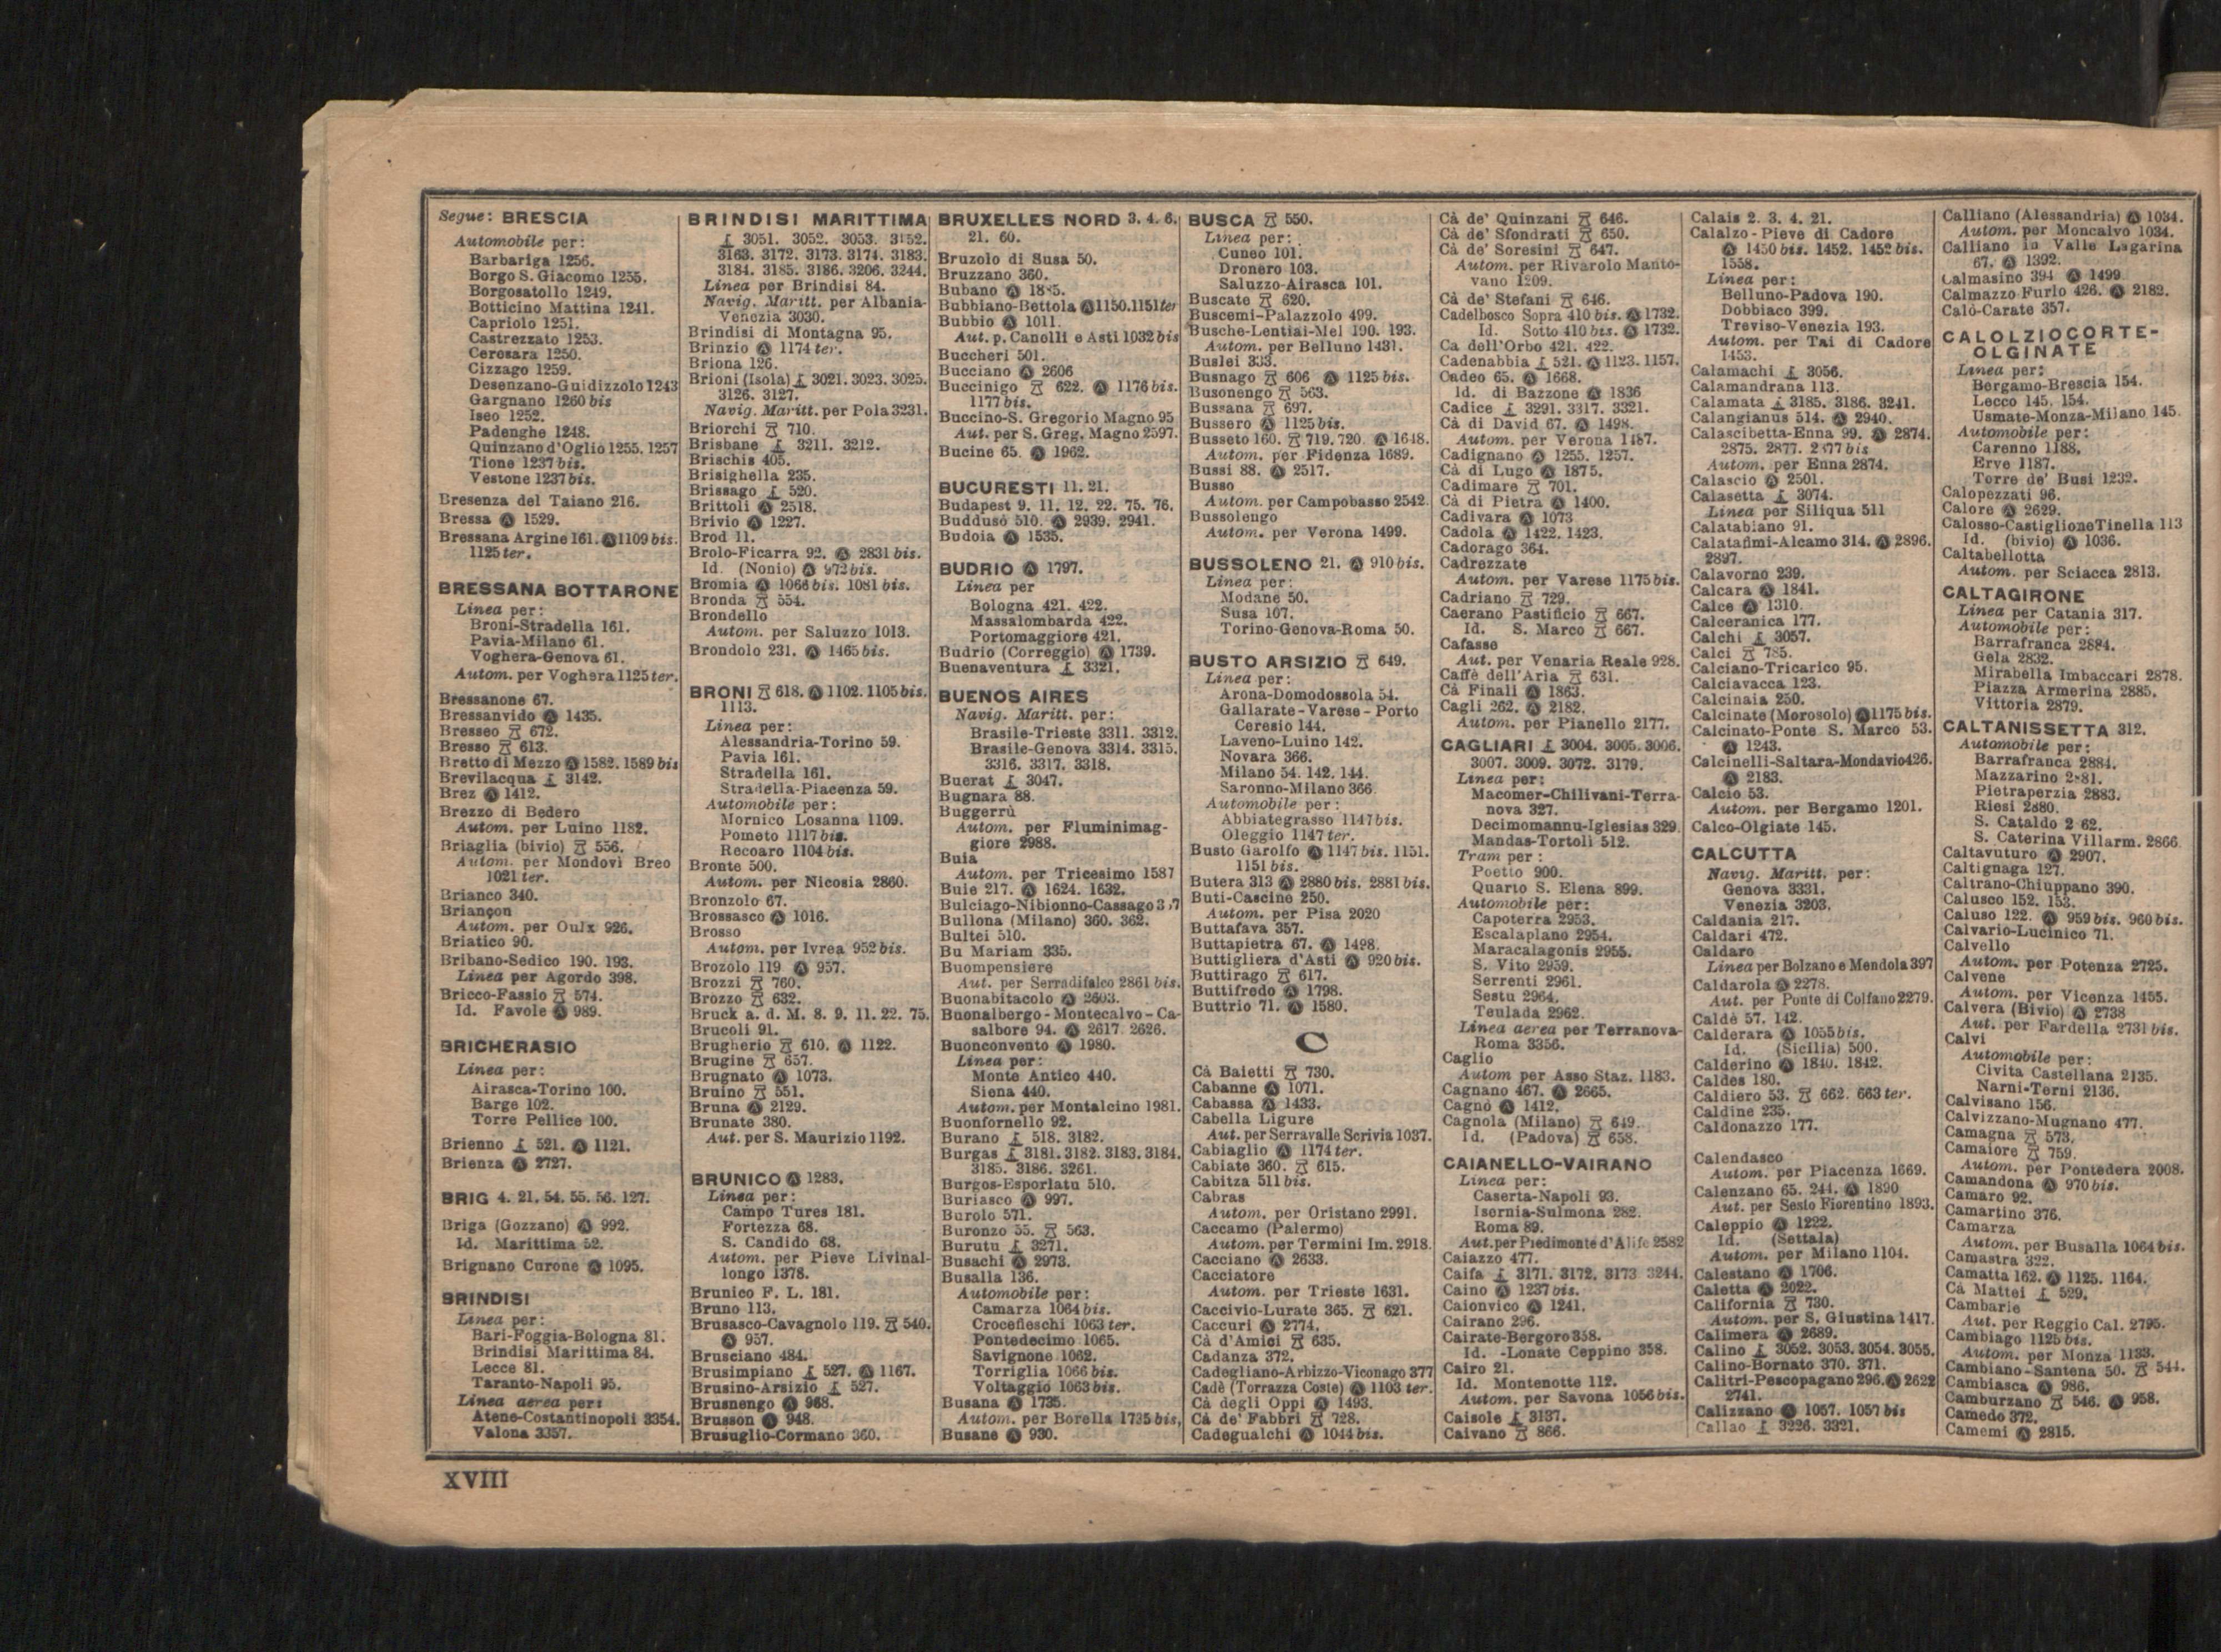 Segue: BRESCIA
Automobile per:
Barbariga 1256.
Borgo S. Giacomo 1255.
Borgosatollo 1249.
Botticino Mattina 1241.
Capriolo 1251.
Castrezzato 1253.
Ceresara 1250.
Cizzago 1259.
Desenzano-Guidizzolo 1243
Gargnano 1260 bis
Iseo 1252.
Padenghe 1248.
Quinzano d'Oglio 1255. 1257
Tione 1237 bis.
Vestone 1237 bis.
Bresenza del Taiano 216.
Bressa Ⓐ 1529.
Bressana Argine 161. Ⓐ 1109 bis.
1125 ter.
BRESSANA BOTTARONE
Linea per:
Broni-Stradella 161.
Pavia-Milano 61.
Voghera-Genova 61.
Autom. per Voghera 1125 ter.
Bressanone 67.
Bressanvido Ⓐ 1435.
Bresseo 672.
Bresso 613.
Bretto di Mezzo Ⓐ 1582. 1589 bis
Brevilacqua 3142.
Brez Ⓐ 1412.
Brezzo di Bedero
Autom. per Luino 1182.
Briaglia (bivio) 556.
Autom. per Mondovì Breo
1021 ter.
Brianco 340.
Briançon
Autom. per Oulx 926.
Briatico 90.
Bribano-Sedico 190. 193.
Linea per Agordo 398.
Bricco-Fassio 574.
Id. Favole Ⓐ 989.
BRICHERASIO
Linea per:
Airasca-Torino 100.
Barge 102.
Torre Pellice 100.
Brienno 521. Ⓐ 1121.
Brienza Ⓐ 2727.
BRIG 4. 21. 54. 55. 56. 127.
Briga (Gozzano) Ⓐ 992.
Id. Marittima 52.
Brignano Curone Ⓐ 1095.
BRINDISI
Linea per:
Bari-Foggia-Bologna 81.
Brindisi Marittima 84.
Lecce 81.
Taranto-Napoli 95.
Linea aerea per:
Atene-Costantinopoli 3354.
Valona 3357.
BRINDISI MARITTIMA
3051. 3052. 3053. 3152.
3163. 3172. 3173. 3174. 3183.
3184. 3185. 3186. 3206. 3244.
Linea per Brindisi 84.
Navig. Maritt. per Albania-
Venezia 3030.
Brindisi di Montagna 95.
Brinzio Ⓐ 1174 ter.
Briona 126.
Brioni (Isola) 3021. 3023. 3025.
3126. 3127.
Navig. Maritt. per Pola 3231.
Briorchi 710.
Brisbane 3211. 3212.
Brischis 405.
Brisighella 235.
Brissago 520.
Brittoli Ⓐ 2518.
Brivio Ⓐ 1227.
Brod 11.
Brolo-Ficarra 92. Ⓐ 2831 bis.
Id. (Nonio) Ⓐ 972 bis.
Bromia Ⓐ 1066 bis. 1081 bis.
Bronda 554.
Brondello
Autom. per Saluzzo 1013.
Brondolo 231. Ⓐ 1465 bis.
BRONI 618. Ⓐ 1102. 1105 bis.
1113.
Linea per:
Alessandria-Torino 59.
Pavia 161.
Stradella 161.
Stradella-Piacenza 59.
Automobile per:
Mornico Losanna 1109.
Pometo 1117 bis.
Recoaro 1104 bis.
Bronte 500.
Autom. per Nicosia 2860.
Bronzolo 67.
Brossasco Ⓐ 1016.
Brosso
Autom. per Ivrea 952 bis.
Brozolo 119 Ⓐ 957.
Brozzi 760.
Brozzo 632.
Bruck a. d. M. 8. 9. 11. 22. 75.
Brucoli 91.
Brugherio 610. Ⓐ 1122.
Brugine 657.
Brugnato Ⓐ 1073.
Bruino 551.
Bruna Ⓐ 2129.
Brunate 380.
Aut. per S. Maurizio 1192.
BRUNICO Ⓐ 1283.
Linea per:
Campo Tures 181.
Fortezza 68.
S. Candido 68.
Autom. per Pieve Livinal-
longo 1378.
Brunico F. L. 181.
Bruno 113.
Brusasco-Cavagnolo 119. 540.
Ⓐ 957.
Brusciano 484.
Brusimpiano 527. Ⓐ 1167.
Brusino-Arsizio 527.
Brusnengo Ⓐ 968.
Brusson Ⓐ 948.
Brusuglio-Cormano 360.
BRUXELLES NORD 3. 4. 6.
21. 60.
Bruzolo di Susa 50.
Bruzzano 360.
Bubano Ⓐ
Bubbiano-Bettola Ⓐ 1150. 1151 ter
Bubbio Ⓐ 1011.
Aut. p. Canelli e Asti 1032 bis
Buccheri 501.
Bucciano Ⓐ 2606
Buccinigo 622. Ⓐ 1176 bis.
1177 bis.
Buccino-S. Gregorio Magno 95
Aut. per S. Greg. Magno 2597.
Bucine 65. Ⓐ 1962.
BUCURESTI 11. 21.
Budapest 9. 11. 12. 22. 75. 76.
Buddusò 510. Ⓐ 2939. 2941.
Budoia Ⓐ 1535.
BUDRIO Ⓐ 1797.
Linea per
Bologna 421. 422.
Massalombarda 422.
Portomaggiore 421.
Budrio (Correggio) Ⓐ 1739.
Buenaventura 3321.
BUENOS AIRES
Navig. Maritt. per:
Brasile-Trieste 3311. 3312.
Brasile-Genova 3314. 3315.
3316. 3317. 3318.
Buerat 3047.
Bugnara 88.
Buggerrù
Autom. per Fluminimag-
giore 2988.
Buia
Autom. per Tricesimo 1587
Buie 217. Ⓐ 1624. 1632.
Bulciago-Nibionno-Cassago
Bullona (Milano) 360. 362.
Bultei 510.
Bu Mariam 335.
Buompensiere
Aut. per Serradifalco 2861 bis.
Buonabitacolo Ⓐ 2603.
Buonalbergo-Montecalvo-Ca-
salbore 94. Ⓐ 2617. 2626.
Buonconvento Ⓐ 1980.
Linea per:
Monte Antico 440.
Siena 440.
Autom. per Montalcino 1981.
Buonfornello 92.
Burano 518. 3182.
Burgas 3181. 3182. 3183. 3184.
3185. 3186. 3261.
Burgos-Esporlatu 510.
Buriasco Ⓐ 997.
Burolo 571.
Buronzo 55. 563.
Burutu 3271.
Busachi Ⓐ 2973.
Busalla 136.
Automobile per:
Camarza 1064 bis.
Crocefieschi 1063 ter.
Pontedecimo 1065.
Savignone 1062.
Torriglia 1066 bis.
Voltaggio 1063 bis.
Busana Ⓐ 1735.
Autom. per Borella 1735 bis,
Busane Ⓐ 930.
BUSCA 550.
Linea per:
Cuneo 101.
Dronero 103.
Saluzzo-Airasca 101.
Buscate 620.
Buscemi-Palazzolo 499.
Busche-Lentiai-Mel 190. 193.
Autom. per Belluno 1431.
Buslei 333.
Busnago 606 Ⓐ 1125 bis.
Busonengo 563.
Bussana 697.
Bussero Ⓐ 1125 bis.
Busseto 160. 719. 720. Ⓐ 1648.
Autom. per Fidenza 1689.
Bussi 88. Ⓐ 2517.
Busso
Autom. per Campobasso 2542.
Bussolengo
Autom. per Verona 1499.
BUSSOLENO 21. Ⓐ 910 bis.
Linea per:
Modane 50.
Susa 107.
Torino-Genova-Roma 50.
BUSTO ARSIZIO 649.
Linea per:
Arona-Domodossola 54.
Gallarate-Varese-Porto
Ceresio 144.
Laveno-Luino 142.
Novara 366.
Milano 54. 142. 144.
Saronno-Milano 366.
Automobile per:
Abbiategrasso 1147 bis.
Oleggio 1147 ter.
Busto Garolfo Ⓐ 1147 bis. 1151.
1151 bis.
Butera 313 Ⓐ 2880 bis. 2881 bis.
Buti-Cascine 250.
Autom. per Pisa 2020
Buttafava 357.
Buttapietra 67. Ⓐ 1498.
Buttigliera d'Asti Ⓐ 920 bis.
Buttirago 617.
Buttifredo Ⓐ 1798.
Buttrio 71. Ⓐ 1580.
C
Cà Baietti 730.
Cabanne Ⓐ 1071.
Cabassa Ⓐ 1433.
Cabella Ligure
Aut. per Serravalle Scrivia 1037.
Cabiaglio Ⓐ 1174 ter.
Cabiate 360. 615.
Cabitza 511 bis.
Cabras
Autom. per Oristano 2991.
Caccamo (Palermo)
Autom. per Termini Im. 2918.
Cacciano Ⓐ 2633.
Cacciatore
Autom. per Trieste 1631.
Caccivio-Lurate 365. 621.
Caccuri Ⓐ 2774.
Cà d'Amici 635.
Cadanza 372.
Cadegliano-Arbizzo-Viconago 377
Cadè (Torrazza Coste) Ⓐ 1103 ter.
Cà degli Oppi Ⓐ 1493.
Cà de' Fabbri 728.
Cadegualchi Ⓐ 1044 bis.
Cà de' Quinzani 646.
Cà de' Sfondrati 650.
Cà de' Soresini 647.
Autom. per Rivarolo Manto-
vano 1209.
Cà de' Stefani 646.
Cadelbosco Sopra 410 bis. Ⓐ 1732.
Id. Sotto 410 bis. Ⓐ 1732.
Ca dell'Orbo 421. 422.
Cadenabbia 521. Ⓐ 1123. 1157.
Cadeo 65. Ⓐ 1668.
Id. di Bazzone Ⓐ 1836
Cadice 3291. 3317. 3321.
Cà di David 67. Ⓐ 1498.
Autom. per Verona 1487.
Cadignano Ⓐ 1255. 1257.
Cà di Lugo Ⓐ 1875.
Cadimare 701.
Cà di Pietra Ⓐ 1400.
Cadivara Ⓐ 1073
Cadola Ⓐ 1422. 1423.
Cadorago 364.
Cadrezzate
Autom. per Varese 1175 bis.
Cadriano 729.
Caerano Pastificio 667.
Id. S. Marco 667.
Cafasse
Aut. per Venaria Reale 928.
Caffè dell'Aria 631.
Cà Finali Ⓐ 1863.
Cagli 262. Ⓐ 2182.
Autom. per Pianello 2177.
CAGLIARI 3004. 3005. 3006.
3007. 3009. 3072. 3179.
Linea per:
Macomer-Chilivani-Terra-
nova 327.
Decimomannu-Iglesias 329.
Mandas-Tortolì 512.
Tram per:
Poetto 900.
Quarto S. Elena 899.
Automobile per:
Capoterra 2953.
Escalaplano 2954.
Maracalagonis 2955.
S. Vito 2959.
Serrenti 2961.
Sestu 2964.
Teulada 2962.
Linea aerea per Terranova-
Roma 3356.
Caglio
Autom per Asso Staz. 1183.
Cagnano 467. Ⓐ 2665.
Cagnò Ⓐ 1412.
Cagnola (Milano) 649.
Id. (Padova) 658.
CAIANELLO-VAIRANO
Linea per:
Caserta-Napoli 93.
Isernia-Sulmona 282.
Roma 89.
Aut. per Piedimonte d'Alife 2582
Caiazzo 477.
Caifa 3171. 3172. 3173 3244.
Caino Ⓐ 1237 bis.
Caionvico Ⓐ 1241.
Cairano 296.
Cairate-Bergoro 358.
Id. -Lonate Ceppino 358.
Cairo 21.
Id. Montenotte 112.
Autom. per Savona 1056 bis.
Caisole 3137.
Caivano 866.
Calais 2. 3. 4. 21.
Calalzo-Pieve di Cadore
Ⓐ 1450 bis. 1452. 1452 bis.
1558.
Linea per:
Belluno-Padova 190.
Dobbiaco 399.
Treviso-Venezia 193.
Autom. per Tai di Cadore
1453.
Calamachi 3056.
Calamandrana 113.
Calamata 3185. 3186. 3241.
Calangianus 514. Ⓐ 2940.
Calascibetta-Enna 99. Ⓐ 2874.
2875. 2877. 2877 bis
Autom. per Enna 2874.
Calascio Ⓐ 2501.
Calasetta 3074.
Linea per Siliqua 511
Calatabiano 91.
Calatafimi-Alcamo 314. Ⓐ 2896.
2897.
Calavorno 239.
Calcara Ⓐ 1841.
Calce Ⓐ 1310.
Calceranica 177.
Calchi 3057.
Calci 785.
Calciano-Tricarico 95.
Calciavacca 123.
Calcinaia 250.
Calcinate (Morosolo) Ⓐ 1175 bis.
Calcinato-Ponte S. Marco 53.
Ⓐ 1243.
Calcinelli-Saltara-Mondavio 426.
Ⓐ 2183.
Calcio 53.
Autom. per Bergamo 1201.
Calco-Olgiate 145.
CALCUTTA
Navig. Maritt. per:
Genova 3331.
Venezia 3203.
Caldania 217.
Caldari 472.
Caldaro
Linea per Bolzano e Mendola 397
Caldarola Ⓐ 2278.
Aut. per Ponte di Colfano 2279.
Caldè 57. 142.
Calderara Ⓐ 1055 bis.
Id. (Sicilia) 500.
Calderino Ⓐ 1840. 1842.
Caldes 180.
Caldiero 53. 662. 663 ter.
Caldine 235.
Caldonazzo 177.
Calendasco
Autom. per Piacenza 1669.
Calenzano 65. 244. Ⓐ 1890
Aut. per Sesto Fiorentino 1893.
Caleppio Ⓐ 1222.
Id. (Settala)
Autom. per Milano 1104.
Calestano Ⓐ 1706.
Caletta Ⓐ 2022.
California 730.
Autom. per S. Giustina 1417.
Calimera Ⓐ 2689.
Calino 3052. 3053. 3054. 3055.
Calino-Bornato 370. 371.
Calitri-Pescopagano 296. Ⓐ 2622
2741.
Calizzano Ⓐ 1057. 1057 bis
Callao 3226. 3321.
Calliano (Alessandria) Ⓐ 1034.
Autom. per Moncalvo 1034.
Calliano in Valle Lagarina
67. Ⓐ 1392.
Calmasino 394 Ⓐ 1499
Calmazzo Furlo 426. Ⓐ 2182.
Calò-Carate 357.
CALOLZIOCORTE-
OLGINATE
Linea per:
Bergamo-Brescia 154.
Lecco 145. 154.
Usmate-Monza-Milano 145.
Automobile per:
Carenno 1188.
Erve 1187.
Torre de' Busi 1232.
Calopezzati 96.
Calore Ⓐ 2629.
Calosso-Castiglione Tinella 113
Id. (bivio) Ⓐ 1036.
Caltabellotta
Autom. per Sciacca 2813.
CALTAGIRONE
Linea per Catania 317.
Automobile per:
Barrafranca 2884.
Gela 2832.
Mirabella Imbaccari 2878.
Piazza Armerina 2885.
Vittoria 2879.
CALTANISSETTA 312.
Automobile per:
Barrafranca 2884.
Mazzarino
Pietraperzia 2883.
Riesi 2880.
S. Cataldo
S. Caterina Villarm. 2866.
Caltavuturo Ⓐ 2907.
Caltignaga 127.
Caltrano-Chiuppano 390.
Calusco 152. 153.
Caluso 122. Ⓐ 959 bis. 960 bis.
Calvario-Lucinico 71.
Calvello
Autom. per Potenza 2725.
Calvene
Autom. per Vicenza 1455.
Calvera (Bivio) Ⓐ 2738
Aut. per Fardella 2731 bis.
Calvi
Automobile per:
Civita Castellana 2135.
Narni-Terni 2136.
Calvisano 156.
Calvizzano-Mugnano 477.
Camagna 573.
Camaiore 759.
Autom. per Pontedera 2008.
Camandona Ⓐ 970 bis.
Camaro 92.
Camartino 376.
Camarza
Autom. per Busalla 1064 bis.
Camastra 322.
Camatta 162. Ⓐ 1125. 1164.
Cà Mattei 529.
Cambarie
Aut. per Reggio Cal. 2795.
Cambiago 1125 bis.
Autom. per Monza 1133.
Cambiano-Santena 50. 544.
Cambiasca Ⓐ 986.
Camburzano 546. Ⓐ 958.
Camedo 372.
Camemi Ⓐ 2815.
XVIII